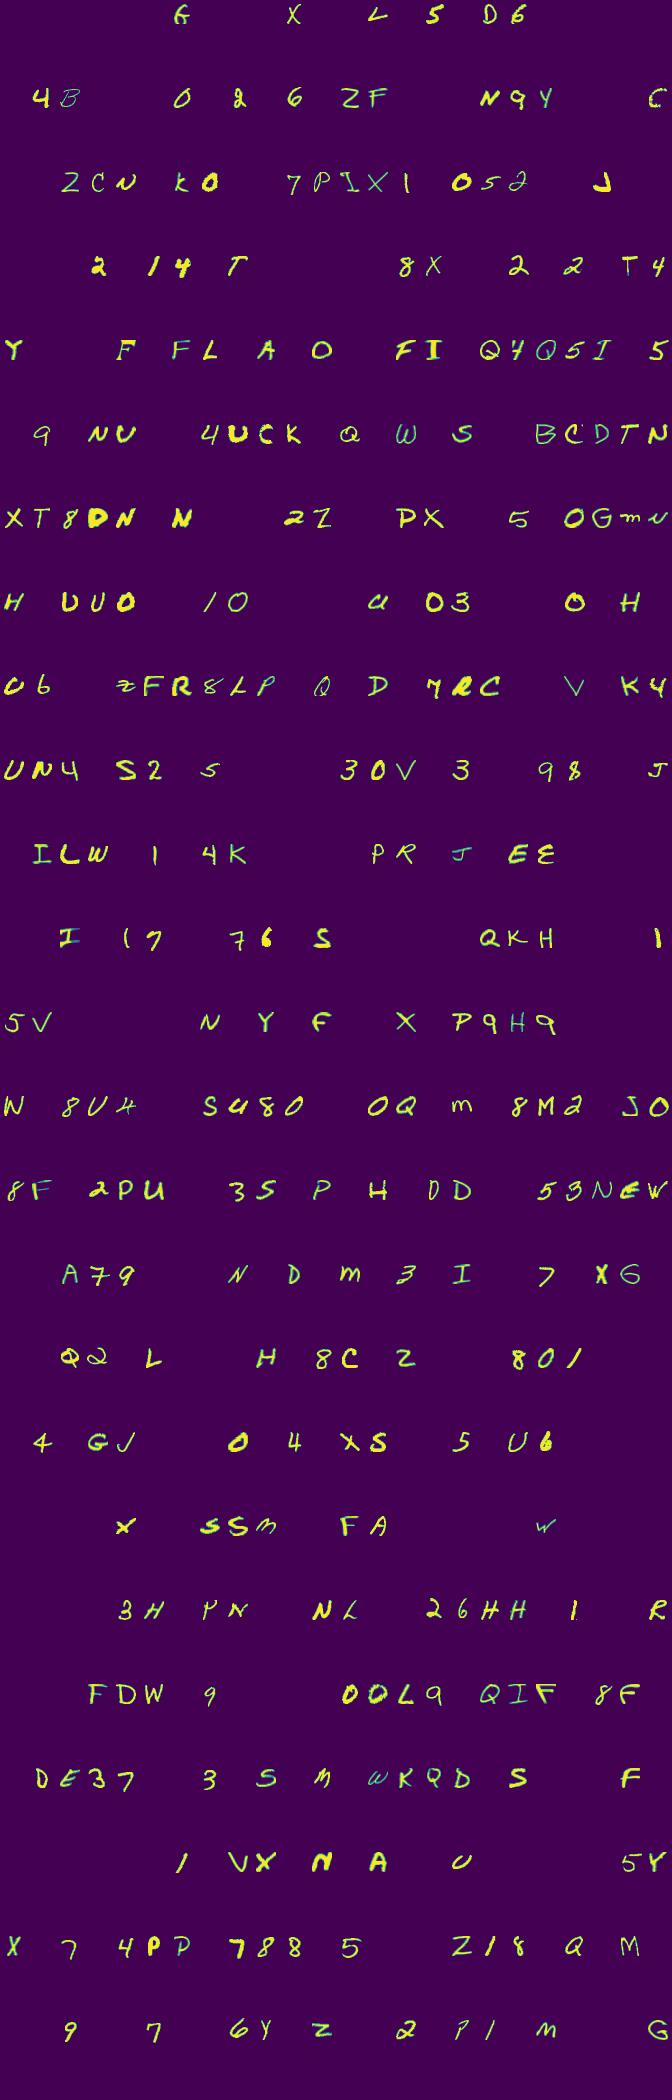 G X L 5 D6
4B 0 2 6 ZF N9Y C
ZCN K0 7PIX1 052 J
2 144 T 8X 2 2 T4
Y F FL A O FI Q4Q5I 5
9 NU 4UCK Q W S BCDTN
XT8DN N 2Z PX 5 0GmN
H UU0 10 a 03 0 H
U6 ZFR8LP Q D 7RC V K4
UN4 S2 5 30V 3 98 J
ILW 1 4K PR J EE
I 17 76 S QKH 1
5V N Y F X P9H9
W 8U4 SU80 0Q m 8M2 JO
8F 2PU 3S P H DD 53NEW
A79 N D m 3 I 7 XG
Q2 L H 8C Z 801
4 GJ 0 4 XS 5 U6
X SSM FA W
3H PN NL 26HH 1 R
FDW 9 00L9 QIF 8F
DE37 3 S M WKQD S F
1 VX N A U 5Y
X 7 4PP 788 5 Z18 Q M
9 7 6Y Z 2 P1 m G